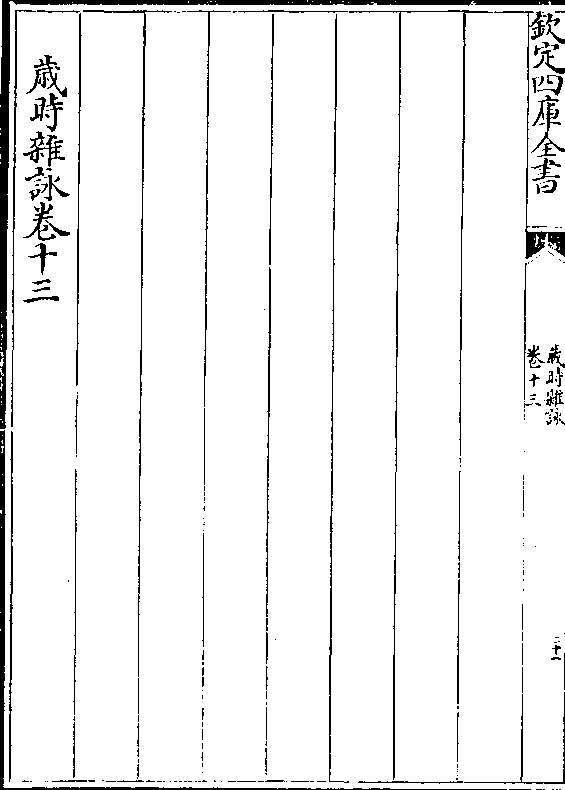 欽定四庫全書
歳時雜詠
卷十三
二十一
歳時雜詠卷十三